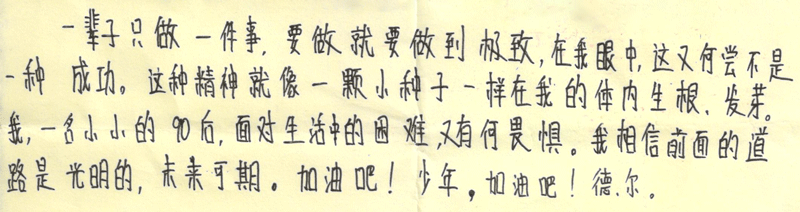 一辈子只做一件事,要做就要做到极致,在我眼中,这又何尝不是
一种成功。这种精神就像一颗小种子一样在我的体内生根、发芽。
我,一名小小的90后,面对生活中的困难,又有何畏惧。我相信前面的道
路是光明的,未来可期。加油吧!少年,加油吧!德尔。